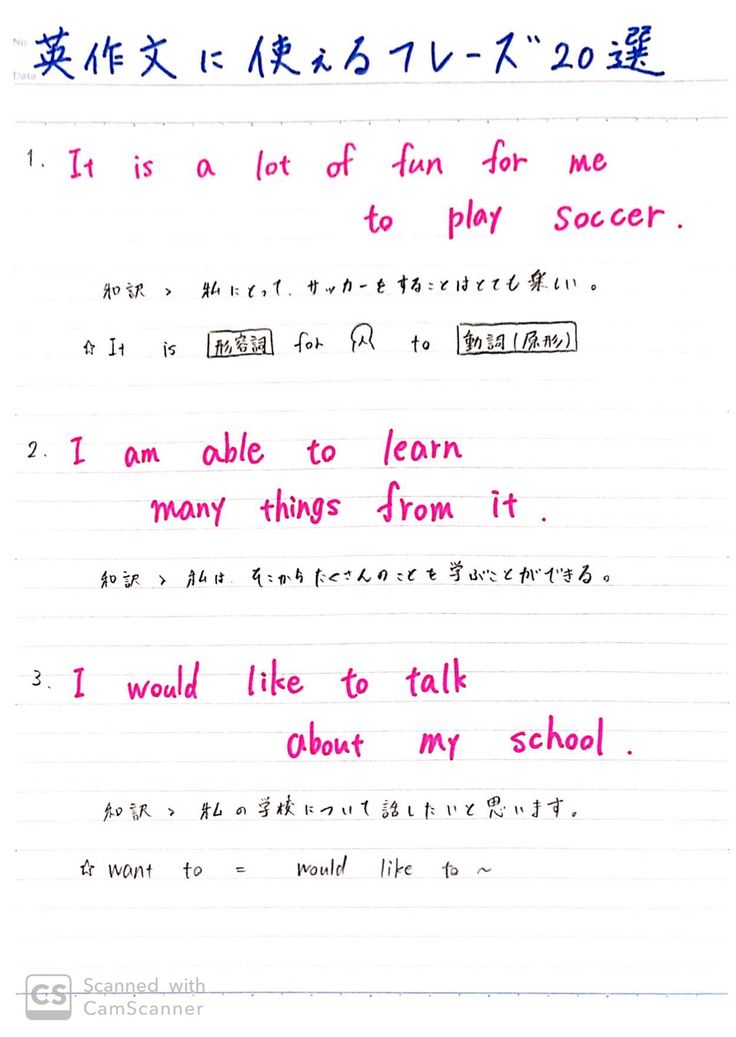 No.
Date
英作文に使えるフレーズ20選
1. It is a lot of fun for me
to play soccer.
和訳 > 私にとって、サッカーをすることはとても楽しい。
☆ It is 形容詞 for 人 to 動詞(原形)
2. I am able to learn
many things from it.
和訳 > 私は、そこからたくさんのことを学ぶことができる。
3. I would like to talk
about my school.
和訳 > 私の学校について話したいと思います。
☆ want to = would like to ~
CS Scanned with
CamScanner